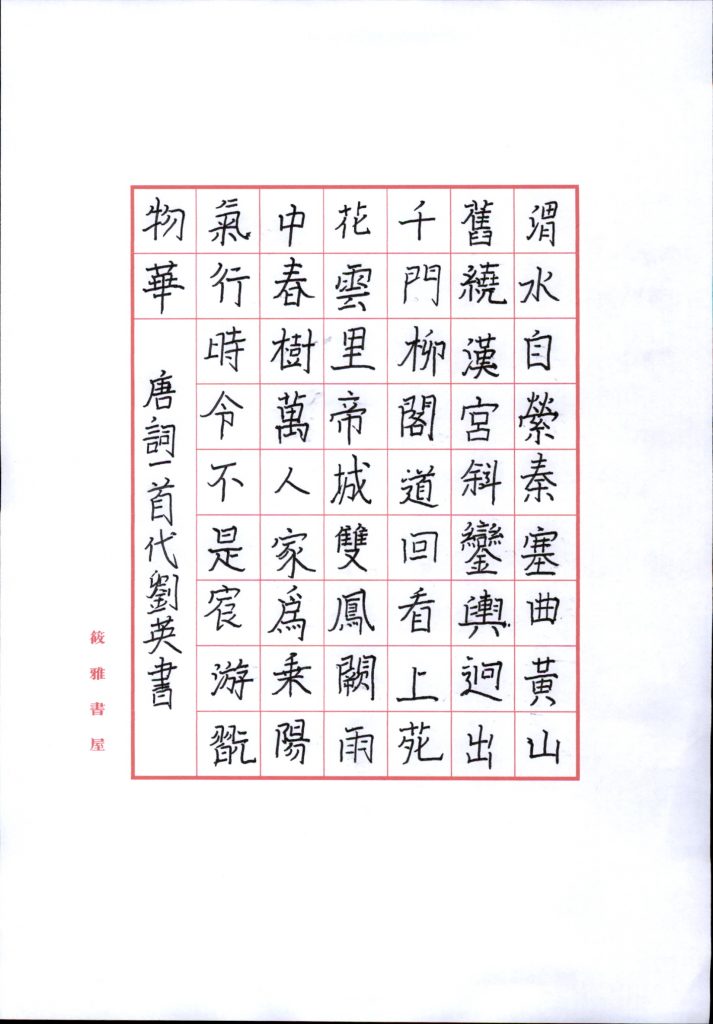 渭水自縈秦塞曲黃山
舊繞漢宮斜鑾輿迥出
千門柳閣道回看上苑
花雲里帝城雙鳳闕雨
中春樹萬人家爲乘陽
氣行時令不是宸游翫
物華
唐詞一首代劉英書
筱雅書屋